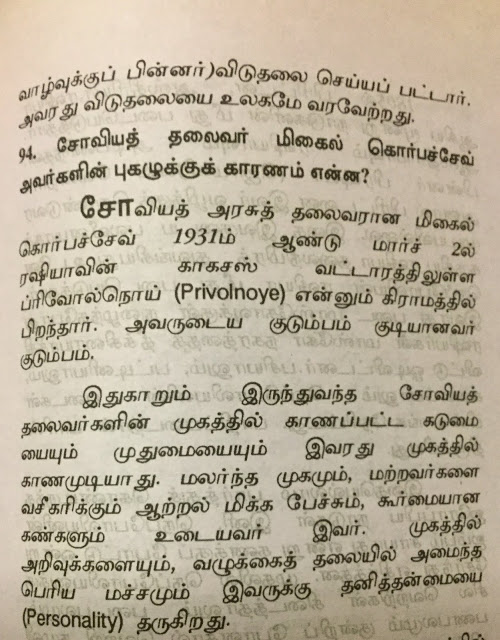 வாழ்வுக்குப் பின்னர்)விடுதலை செய்யப் பட்டார்.
அவரது விடுதலையை உலகமே வரவேற்றது.
94. சோவியத் தலைவர் மிகைல் கொர்பச்சேவ்
அவர்களின் புகழுக்குக் காரணம் என்ன?
சோவியத் அரசுத் தலைவரான மிகைல்
கொர்பச்சேவ் 1931ம் ஆண்டு மார்ச் 2ல்
ரஷியாவின் காகசஸ் வட்டாரத்திலுள்ள
ப்ரிவோல்நொய் (Privolnoye) என்னும் கிராமத்தில்
பிறந்தார். அவருடைய குடும்பம் குடியானவர்
குடும்பம்.
இதுகாறும் இருந்துவந்த சோவியத்
தலைவர்களின் முகத்தில் காணப்பட்ட கடுமை
யையும் முதுமையையும் இவரது முகத்தில்
காணமுடியாது. மலர்ந்த முகமும், மற்றவர்களை
வசீகரிக்கும் ஆற்றல் மிக்க பேச்சும், கூர்மையான
கண்களும் உடையவர் இவர். முகத்தில்
அறிவுக்களையும், வழுக்கைத் தலையில் அமைந்த
பெரிய மச்சமும் இவருக்கு தனித்தன்மையை
(Personality) தருகிறது.